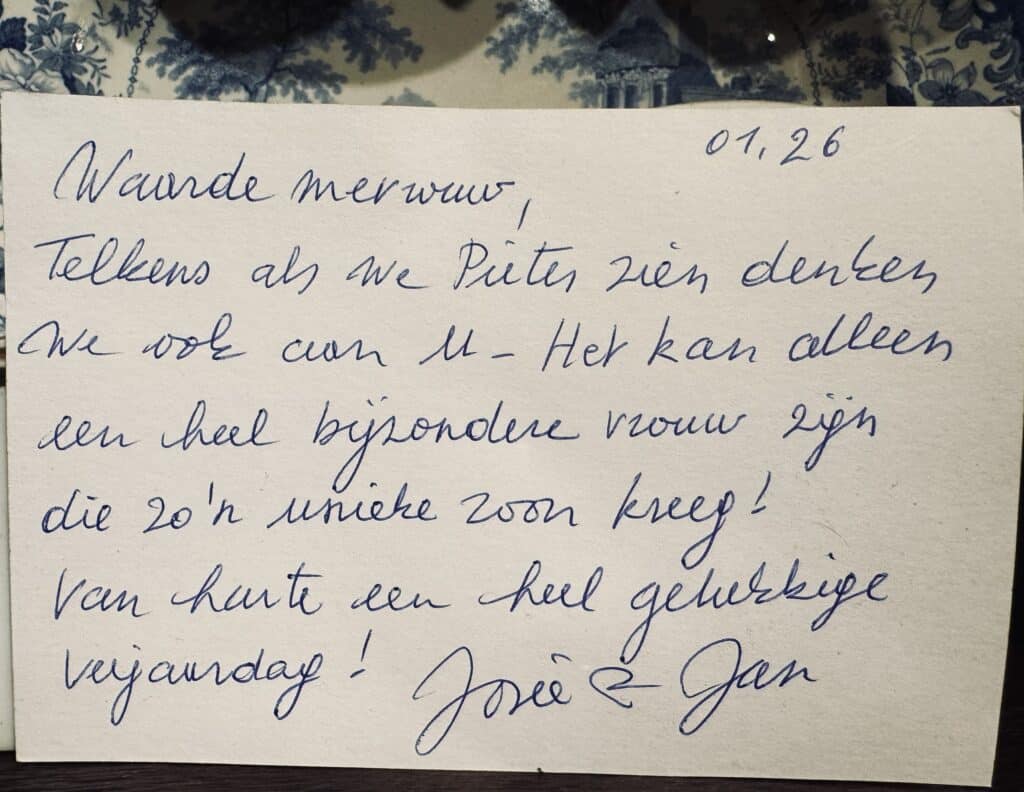 01.26
Waarde mevrouw,
Telkens als we Pieter zien denken
we ook aan U - Het kan alleen
een heel bijzondere vrouw zijn
die zo'n unieke zoon kreeg!
Van harte een heel gelukkige
verjaardag! Josée & Jan